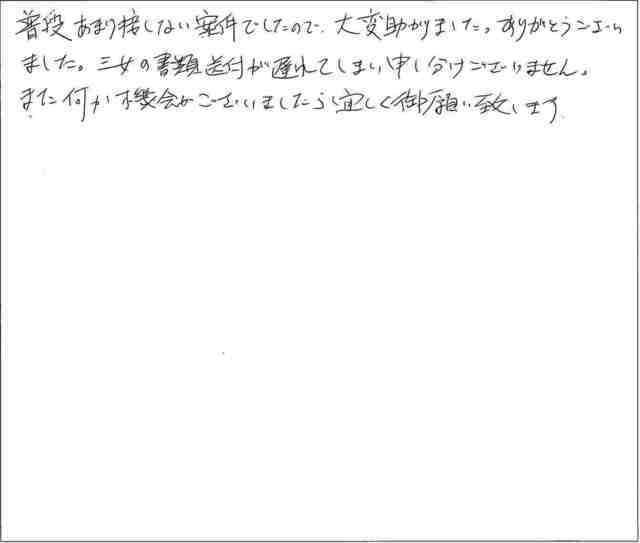 普段あまり接しない案件でしたので、大変助かりました。ありがとうございい
ました。三女の書類送付が遅れてしまい申し分けございません。
また何か機会がございましたら宜しく御願い致します